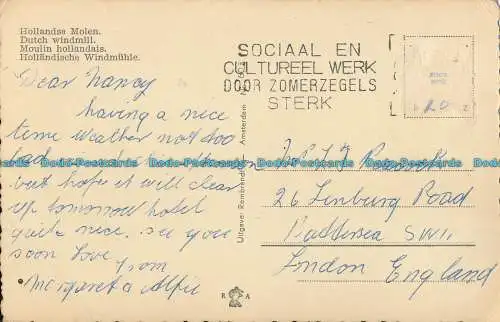 Hollandse Molen.
Dutch windmill.
Moulin hollandais.
Holländische Windmühle.
SOCIAAL EN
CULTUREEL WERK
DOOR ZOMERZEGELS
STERK
Dear Nancy
having a nice
time weather not too
bad
but hope it will clear
up tomorrow hotel
quite nice. see you
soon love
from
Margaret & Alfie
Uitgave: Rembrandt Amsterdam
26 Road
Battersea SW11
London England
R A
Dodo-Postcards Dodo-Postcards Dodo-Postcards Dodo-Postcards